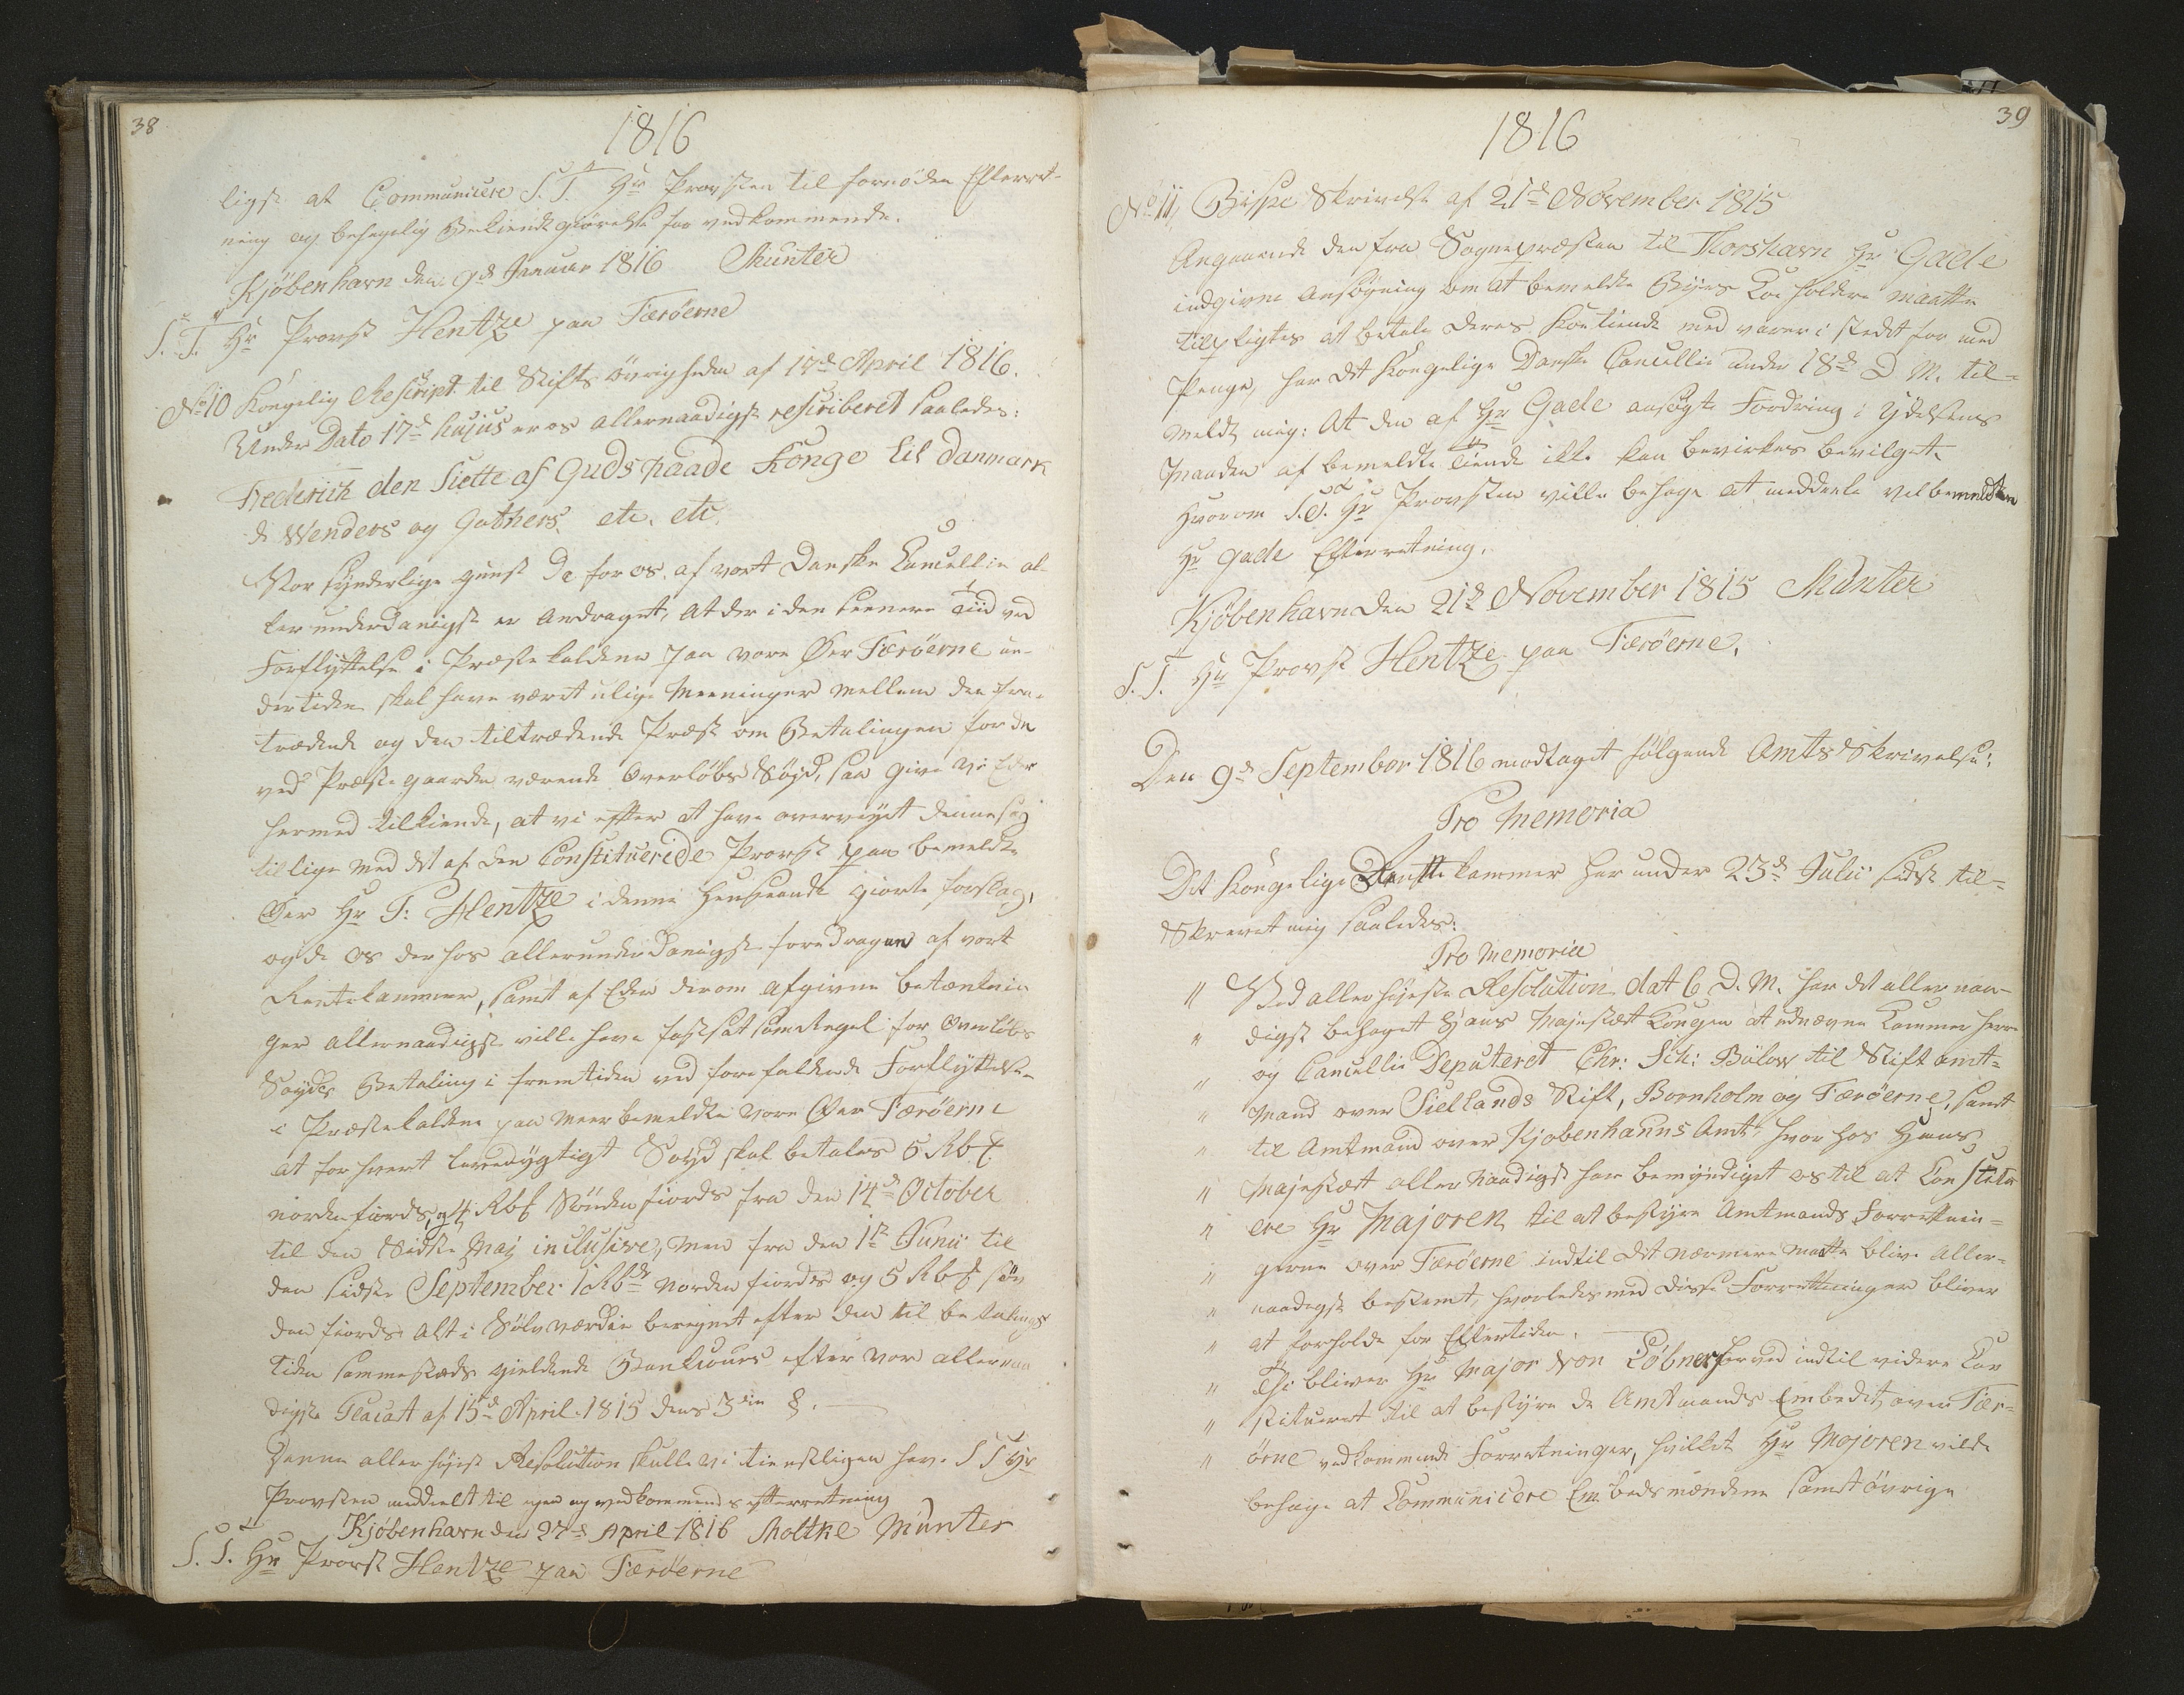 38
1816
ligst at Communicere S. T. Hr Provsten til fornöden Efterret-
ning og behagelig Bekiendtgiörelse for vedkommende.
Kjöbenhavn den 9d Januar 1816 Münter
S. T. Hr Provst Hentze paa Færöerne
No 10 Kongelig Rescript til Stifts Övrigheden af 17d April 1816.
Under Dato 17d hujus er os allernaadigst rescriberet saaledes:
Frederich den Siette af Guds Naade Konge til Danmark
de Wenders og Gothers, etc. etc.
Vor synderlige gunst Da for os af vort Danske Cancellie al-
lerunderdanigst er Andraget, at der i den seenere Tiid ved
Forflyttelse i Præstekaldene paa vore Öer Færöerne un-
dertiden skal have været ulige Meeninger mellem den fra-
trædende og den tiltrædende Præst om Betalingen for de
ved Præstegaarden værende Overlöbs Söyd, saa give Vi Eder
hermed tilkiende, at vi efter at have overveyet denne sag
tillige med det af den Constituerede Provst paa bemeldte
Öer Hr P: Hentze i denne Henseende giorte forslag,
og de os derhos allerunderdanigst foredragne af vort
Rentekammer, samt af Eder derom afgivne betænknin
ger allernaadigst ville have fastsat som Regel for Overlöbs
Söydes Betaling i fremtiden ved forefaldende Forflyttelse
i Præstekaldene paa meerbemeldte vore Öer Færöerne
at for hvert levedygtigt Söyd skal betales 5 Rbf
nordenfiords, og 4 Rbf Söndenfiords fra den 14d October
til den Sidste Maj inclusive, men fra den 1ste Junii til
den sidste September 1 Rbdr nordenfiords og 5 Rbf sön
denfiords alt i Sölvværdie beregnet efter den til betalings
tiden sammesteds gieldende Bankcours efter vor allernaa
digste Placat af 15d April 1815 dens 3die §.
Denne allerhöjest Resolution skulle vi tienstligen have S T Hr
Provsten meddeelt til egen og vedkommendes efterretning
Kjöbenhavn den 27d April 1816 Moltke Münter
S. T. Hr Provst Hentze paa Færöerne
39
1816
No 11, Bispe Skrivelse af 21d November 1815
Angaaende den fra Sognepræsten til Thorshavn Hr Gade
indgivne Ansögning om at bemeldte Byes Koeholdere maatte
tilpligtes at betale deres Koetiende med varer i stedet for med
Penge, har det Kongelige Danske Cancellie under 18de D. M. til-
meldt mig: At den af Hr Gade ansögte Fordring i Ydelsens
Maaden af bemeldte Tiende ikke kan bevirkes bevilget.
Hvorom S. T. Hr Provsten ville behage at meddeele velbemeldten
Hr Gade Efterretning.
Kjöbenhavn den 21de November 1815 Münter
S. T. Hr Provst Hentze paa Færöerne.
Den 9d September 1816 modtaget fölgende Amts Skrivelse:
Pro Memoria
Det Kongelige Rentekammer har under 23d Julii sidst til-
skrevet mig saaledes:
Pro Memoria
" Ved allerhöjeste Resolution dat 6 D. M. har det allernaa-
" digst behaget Hans Majestæt Kongen at udnævne Kammerherre
" og Cancellie Deputeret Chr: Sch: Bülow til Stiftamt-
" mand over Siellands Stift, Bornholm og Færöerne, samt
" til Amtmand over Kjobenhavns Amt, hvorhos Hans
" Majestæt allernaadigst har bemyndiget os til at Constitu
" ere Hr Majoren til at bestyre Amtmands Forretnin-
" gerne over Færöerne indtil det nærmere maatte blive Aller-
" naadigst bestemt, hvorledes med disse Forrettninger bliver
" at forholde for Eftertiden.
" Thi bliver Hr Major von Löbner herved indtil videre Con
" stitueret til at bestyre de Amtmands Embedet over Fær-
" öerne vedkommende Forretninger, hvilket Hr Majoren vilde
behage at Communicere Embedsmændene samt övrige